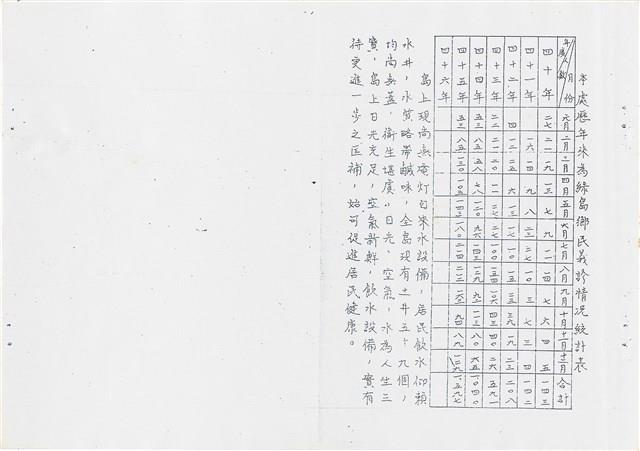 本處歷年來為綠島鄉民義診情況統計表
年度 人數 月份 元月 二月 三月 四月 五月 六月 七月 八月 九月 十月 十一月 十二月 合計
四十年 二七 二一 一九 一三 七 九 一一 一四 七 六 四 五 一四三
四十一年 一六 一四 九 八 二三 二七 一〇 三 七 三 四 一四二
四十二年 四 一二 二五 六 一三 一七 一〇 一五 三五 二九 一九 二三 二〇八
四十三年 二二 二一 二〇 一一 二七 二七 一〇〇 一五四 一〇六 四三 四〇 二六 五九一
四十四年 五三 八五 五八 七八 一二〇 九六 一四三 一二九 九二 一一三 八〇 六五 一〇四〇
四十五年 五三 八五 一三〇 一〇五 一四二 一八〇 二一四 二一二 一六三 九四 八九 一二九 一五九七
四十六年
島上現尚無電灯自來水設備，居民飲水仰賴
水井，水質略帶鹹味，全島現有土井五十九個，
均尚無蓋，衛生堪虞，日光、空氣、水為人生三
寶，島上日光充足，空氣新鮮，飲水設備，實有
待更進一步之匡補，始可促進居民健康。